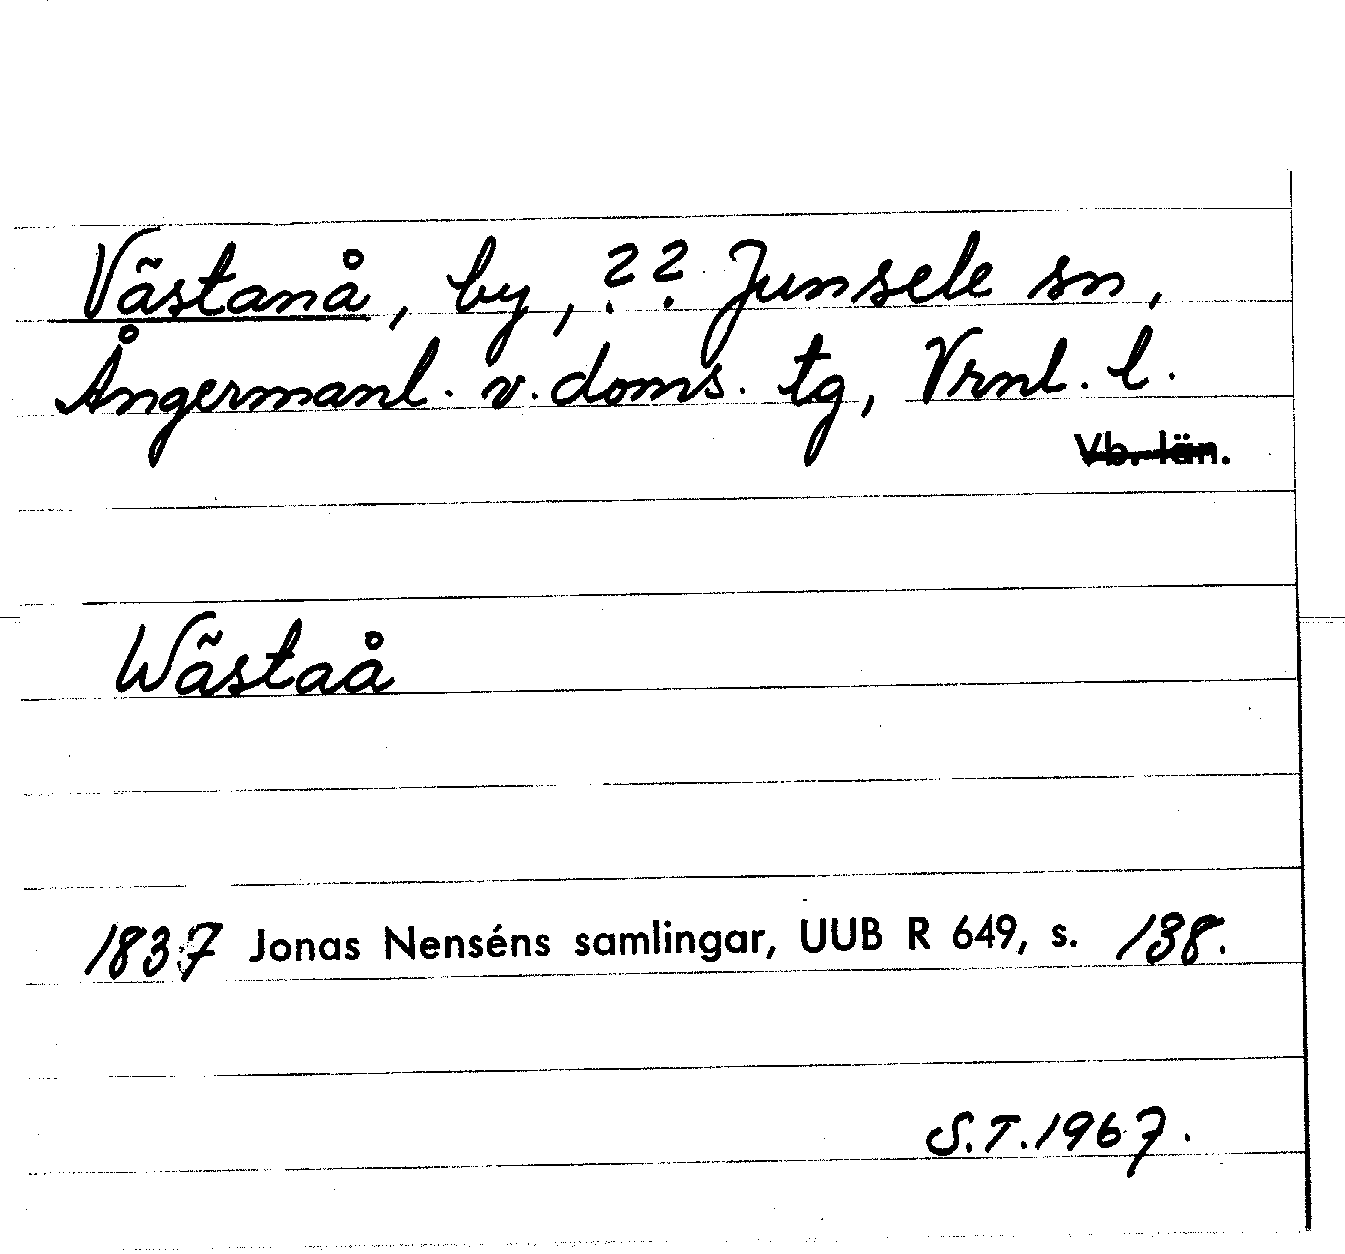 Västanå, by, ?? Junsele sn,
Ångermanl. v. doms. tg, Vrnl. l.
Vb. län.
Wästaå
1837 Jonas Nenséns samlingar, UUB R 649, s. 138.
S.T. 1967.